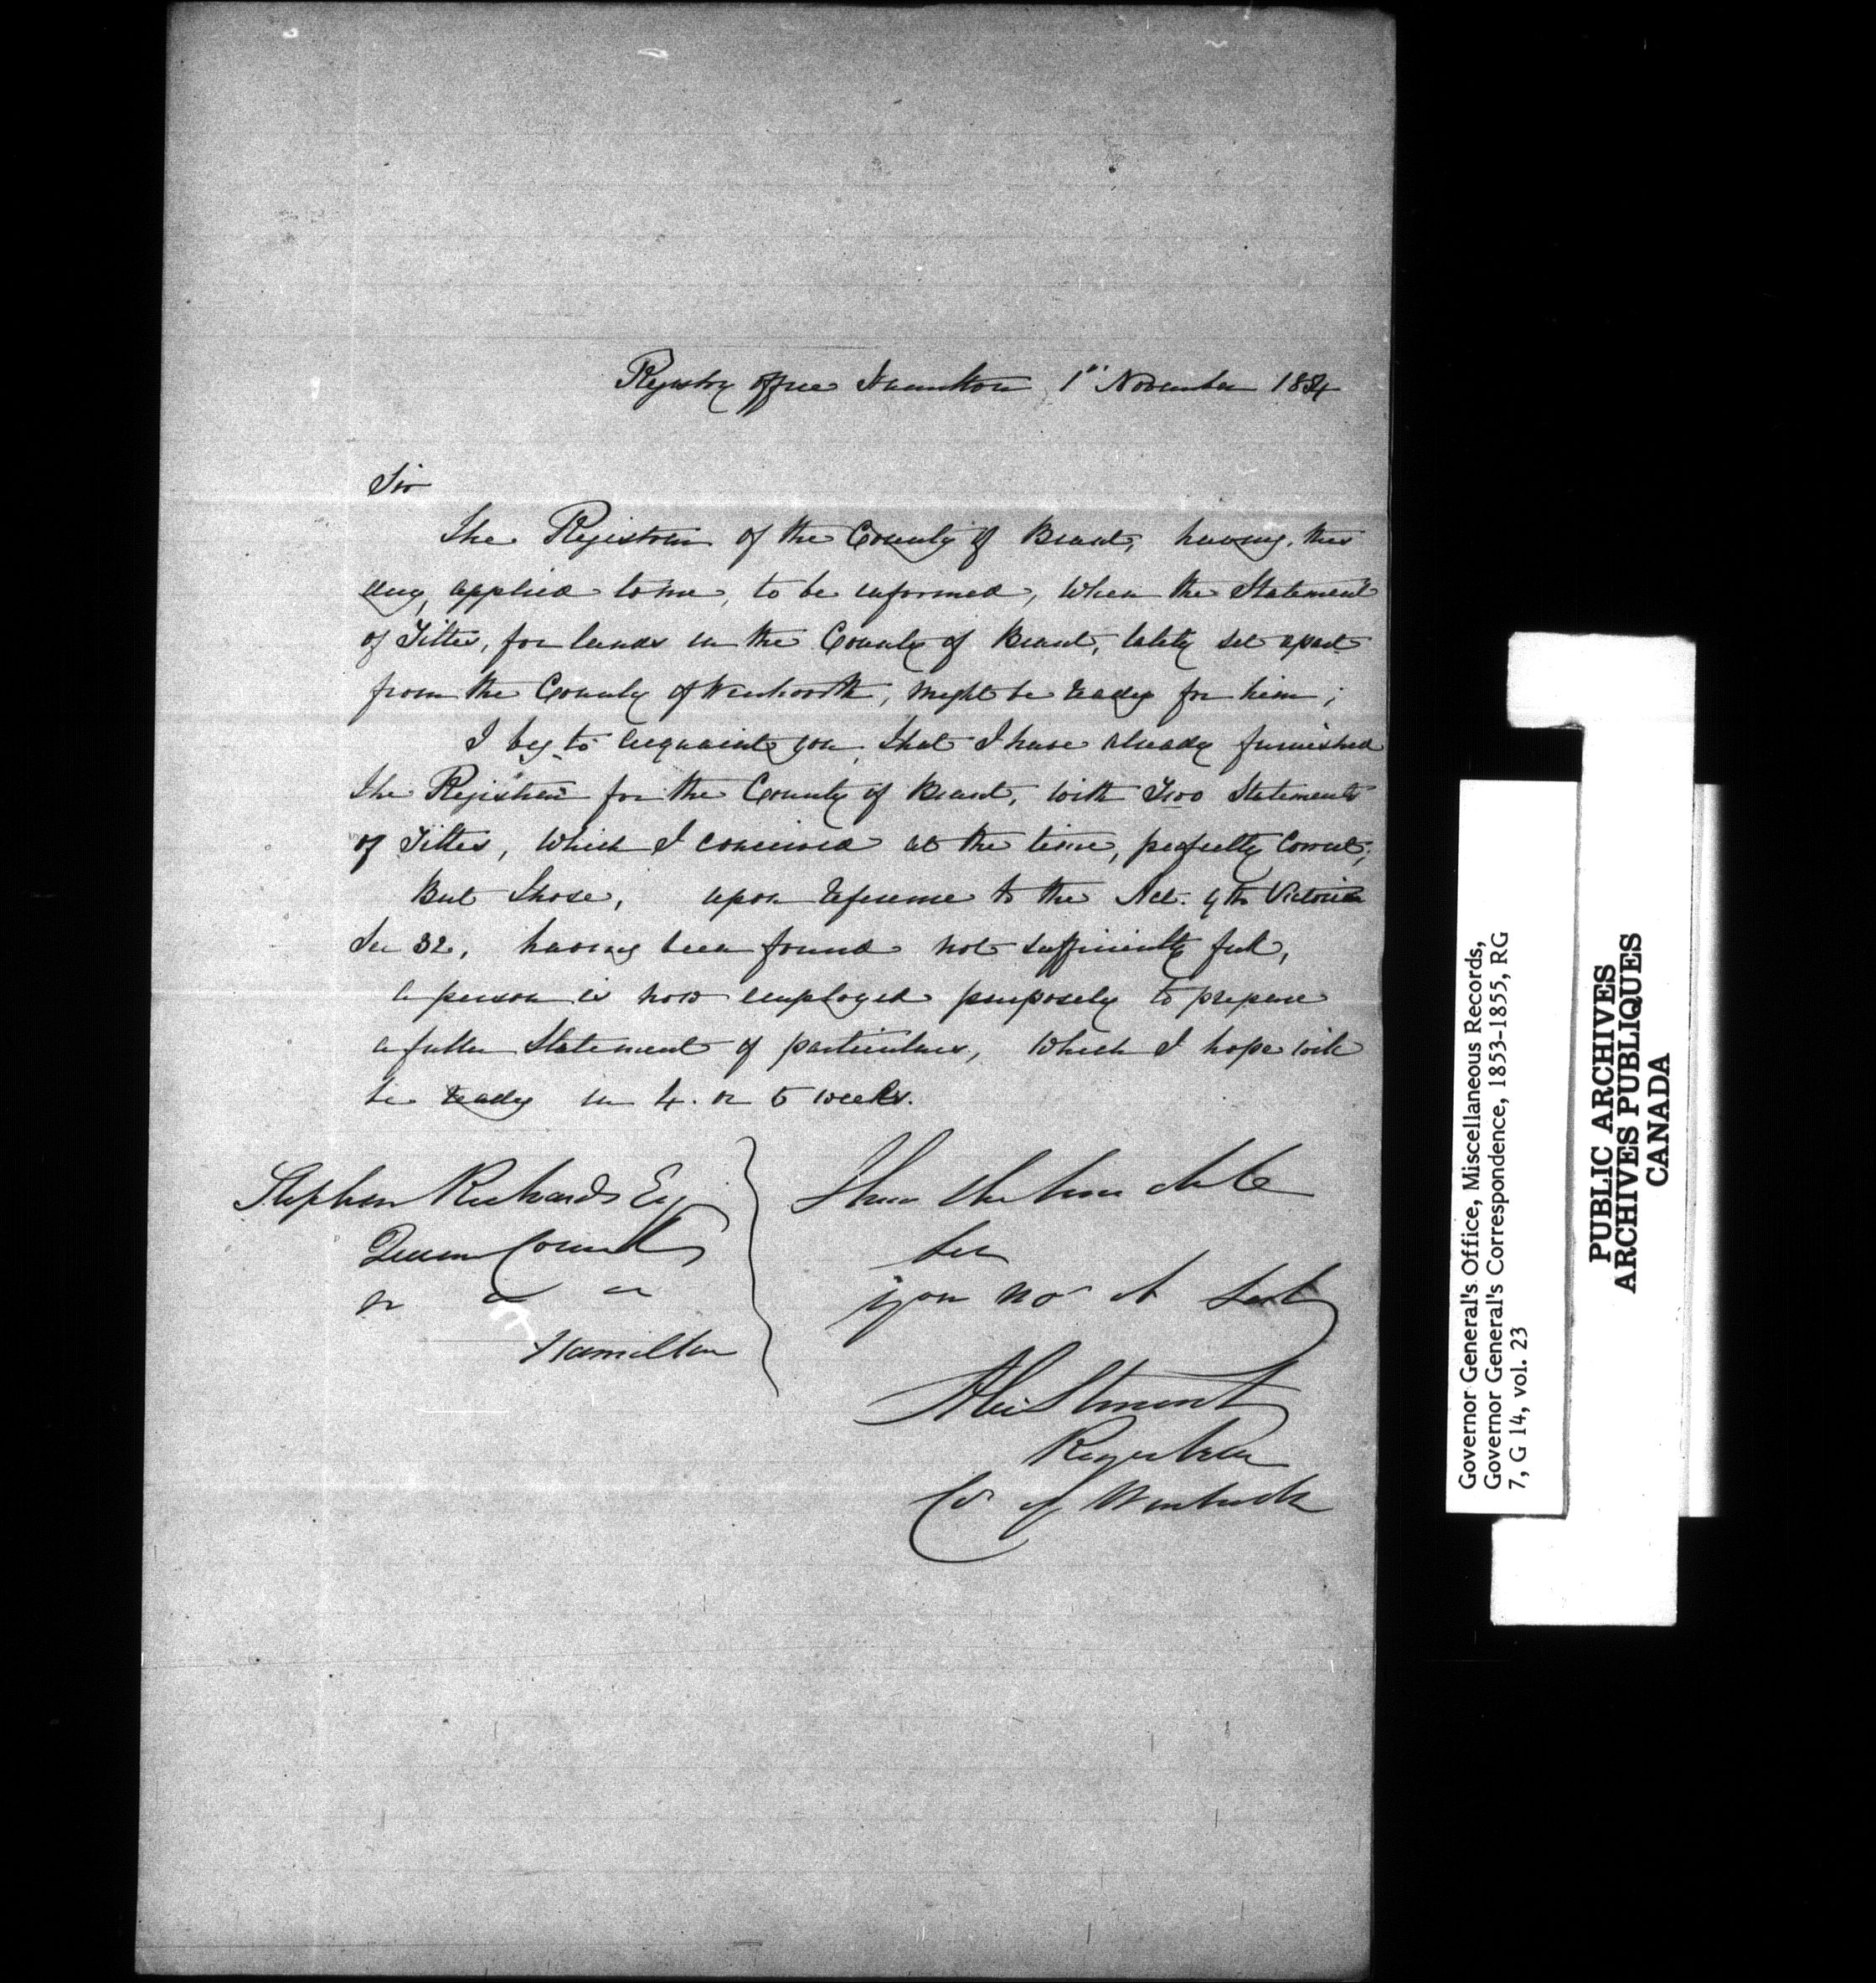 Registry office Hamilton, 1st November 1854
Sir
The Registrar of the County of Brant, having, this
day, applied to me, to be informed, when the Statement
of Titles, for lands in the County of Brant, lately set apart
from the County of Wentworth, might be ready for him;
I beg to acquaint you, that I have already furnished
the Registrar for the County of Brant, with Two Statements
of Titles, which I conceived at the time, perfectly correct;
But those, upon reference to the Act. 9th Victoria
Sec 32, having been found not sufficiently full,
a person is now employed purposely to prepare
a fuller Statement of particulars, which I hope will
be ready in 4. or 5 weeks.
Stephen Richards Esq
Queen Counsel
Hamilton
I have the honor to be
Sir
your mo ob Sert
Alex Stewart
Registrar
Co of Wentworth
Governor General's Office, Miscellaneous Records,
Governor General's Correspondence, 1853-1855, RG
7, G 14, vol. 23
PUBLIC ARCHIVES
ARCHIVES PUBLIQUES
CANADA